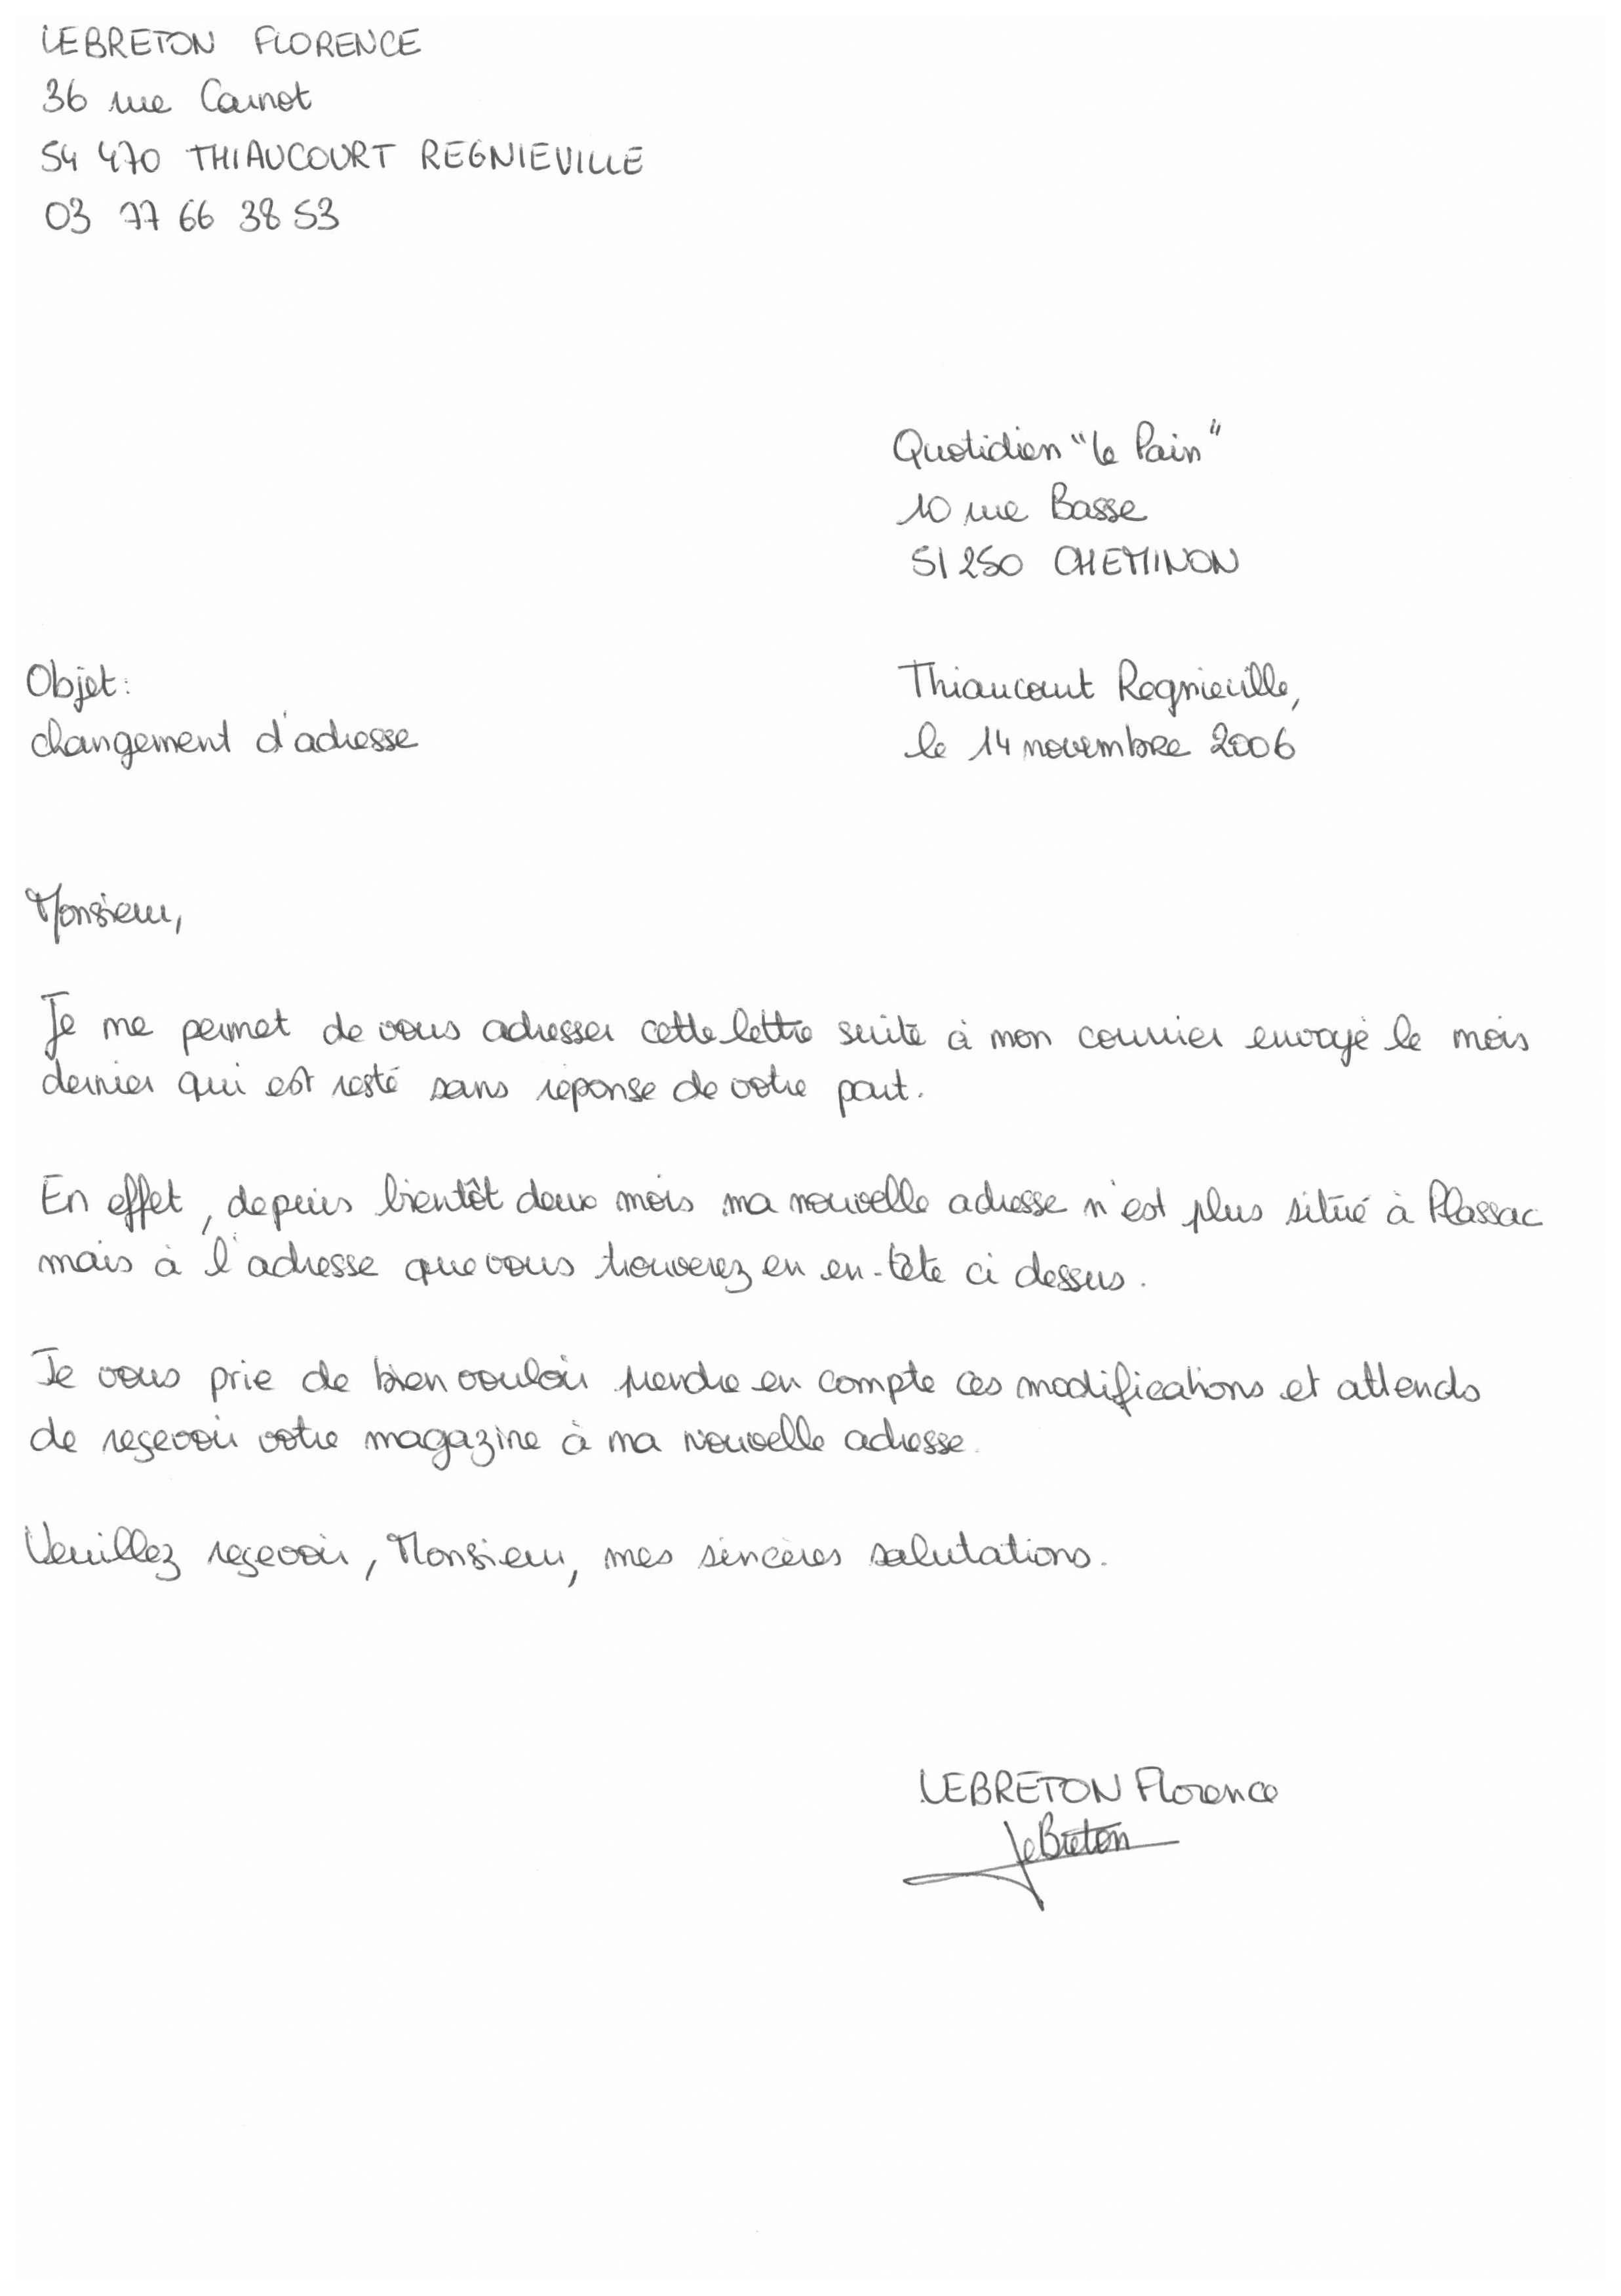 LEBRETON FLORENCE
36 rue Carnot
54 470 THIAUCOURT REGNIEVILLE
03 77 66 38 53
Quotidien "le Pain"
10 rue Basse
51 250 CHEMINON
Objet:
changement d'adresse
Thiaucourt Regnieville,
le 14 novembre 2006
Monsieur,
Je me permet de vous adresser cette lettre suite à mon courrier envoyé le mois
dernier qui est resté sans réponse de votre part.
En effet, depuis bientôt deux mois ma nouvelle adresse n'est plus situé à Plassac
mais à l'adresse que vous trouverez en en-tête ci dessus.
Je vous prie de bien vouloir prendre en compte ces modifications et attends
de reçevoir votre magazine à ma nouvelle adresse.
Veuillez reçevoir, Monsieur, mes sincères salutations.
LEBRETON Florence
LeBreton